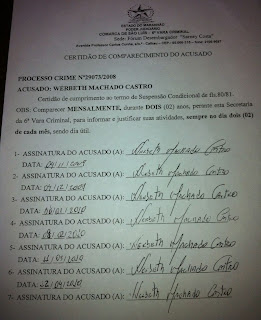 ESTADO DO MARANHÃO
PODER JUDICIÁRIO
COMARCA DE SÃO LUÍS - 6ª VARA CRIMINAL
Sede: Fórum Desembargador "Sarney Costa"
CERTIDÃO DE COMPARECIMENTO DO ACUSADO
PROCESSO CRIME Nº29073/2008
ACUSADO: WERBETH MACHADO CASTRO
Certidão de cumprimento ao termo de Suspensão Condicional de fls.80/81.
OBS: Comparecer MENSALMENTE, durante DOIS (02) anos, perante esta Secretaria
da 6ª Vara Criminal, para informar e justificar suas atividades, sempre no dia dois (02)
de cada mês, sendo dia útil.
1- ASSINATURA DO ACUSADO (A): Werbeth Machado Castro
DATA:
2- ASSINATURA DO ACUSADO (A): Werbeth Machado Castro
DATA:
3- ASSINATURA DO ACUSADO (A): Werbeth Machado Castro
DATA:
4- ASSINATURA DO ACUSADO (A): Werbeth Machado Castro
DATA:
5- ASSINATURA DO ACUSADO (A): Werbeth Machado Castro
DATA:
6- ASSINATURA DO ACUSADO (A): Werbeth Machado Castro
DATA:
7- ASSINATURA DO ACUSADO (A): Werbeth Machado Castro